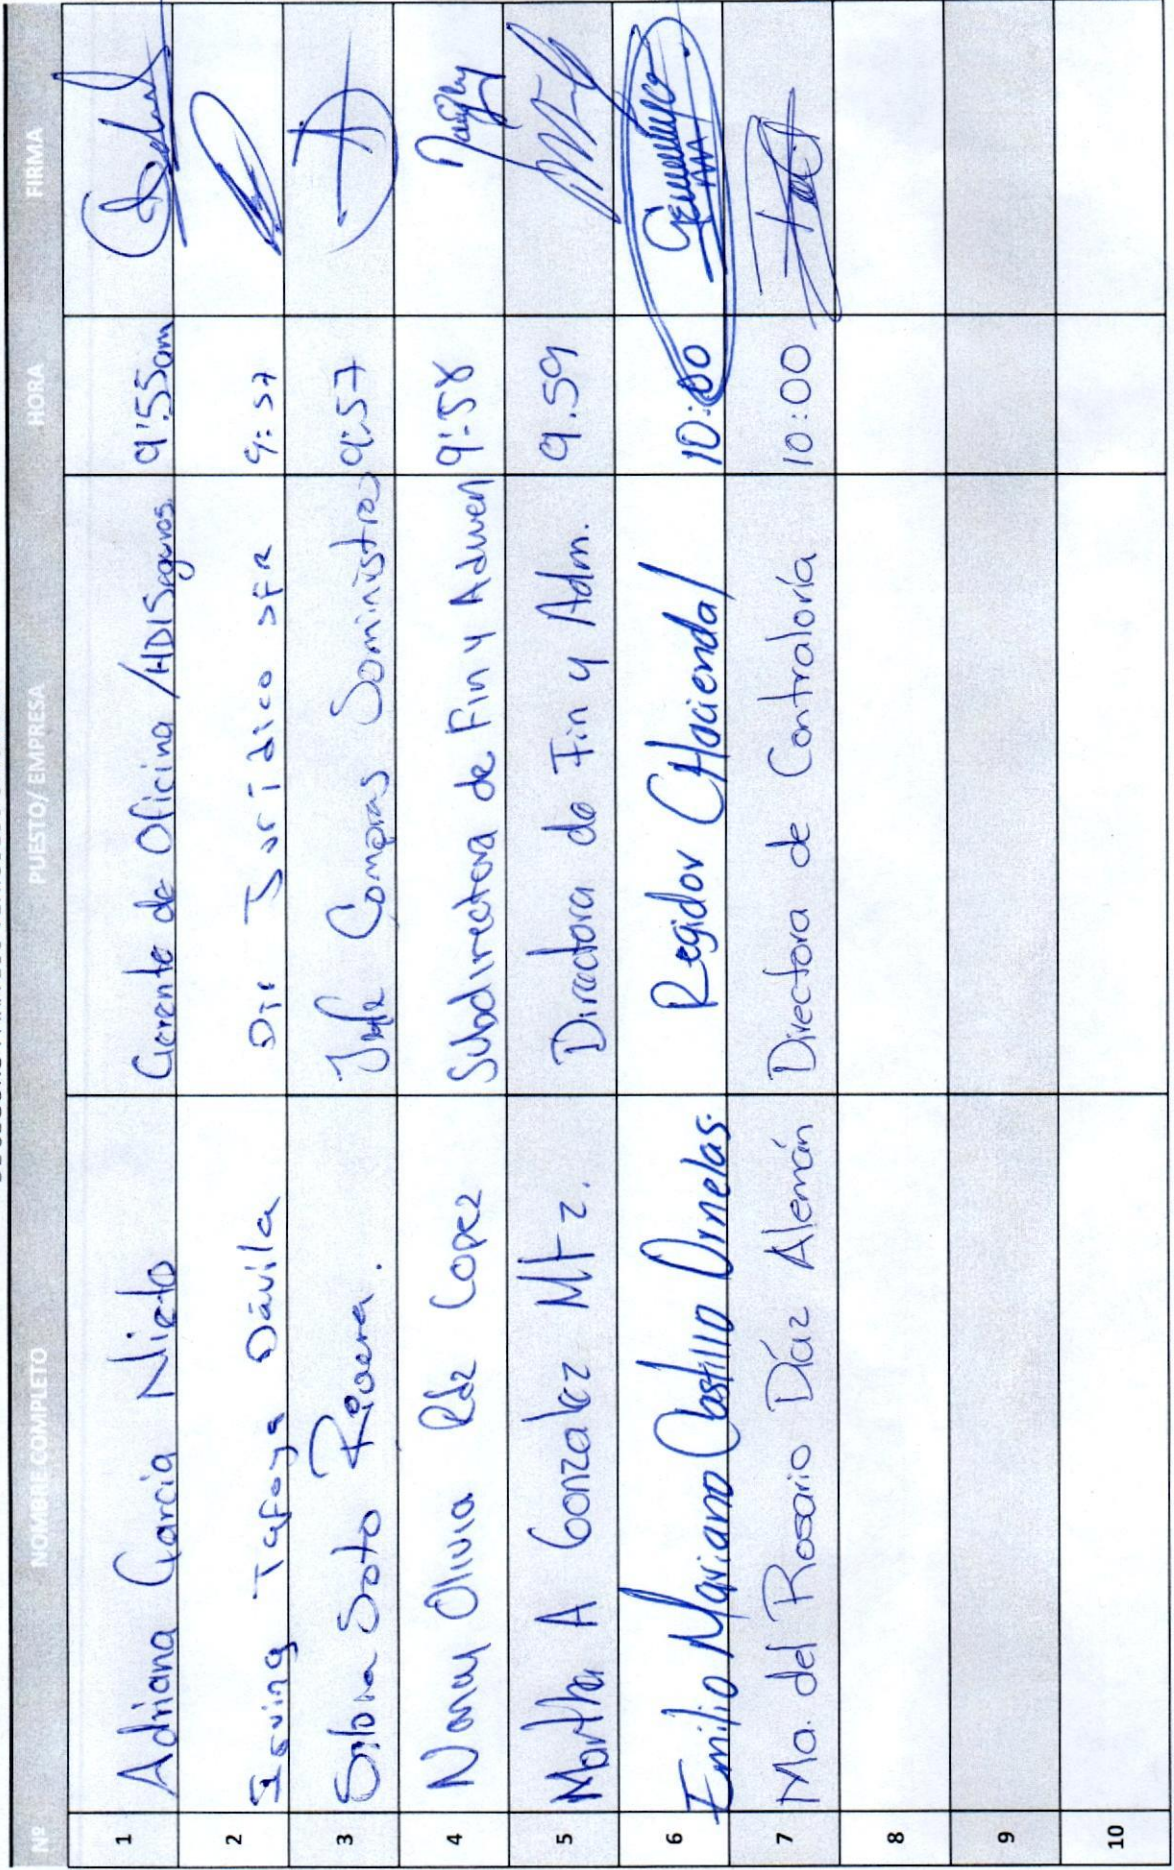 Nº NOMBRE COMPLETO PUESTO/ EMPRESA HORA FIRMA
1 Adriana Garcia Nieto Gerente de Oficina /HDI Seguros 9:55am
2 Irving Tafoya Dávila Dir Jurídico SFR 9:57
3 Silvia Soto Rivera. Jefa Compras Suministros 9:57
4 Nancy Olivia Rdz Lopez Subdirectora de Fin y Admon 9:58
5 Martha A Gonzalez Mtz. Directora de Fin y Adm. 9:59
6 Emilio Mariano Castillo Ornelas. Regidor (Hacienda) 10:00
7 Ma. del Rosario Díaz Alemán Directora de Contraloría 10:00
8
9
10